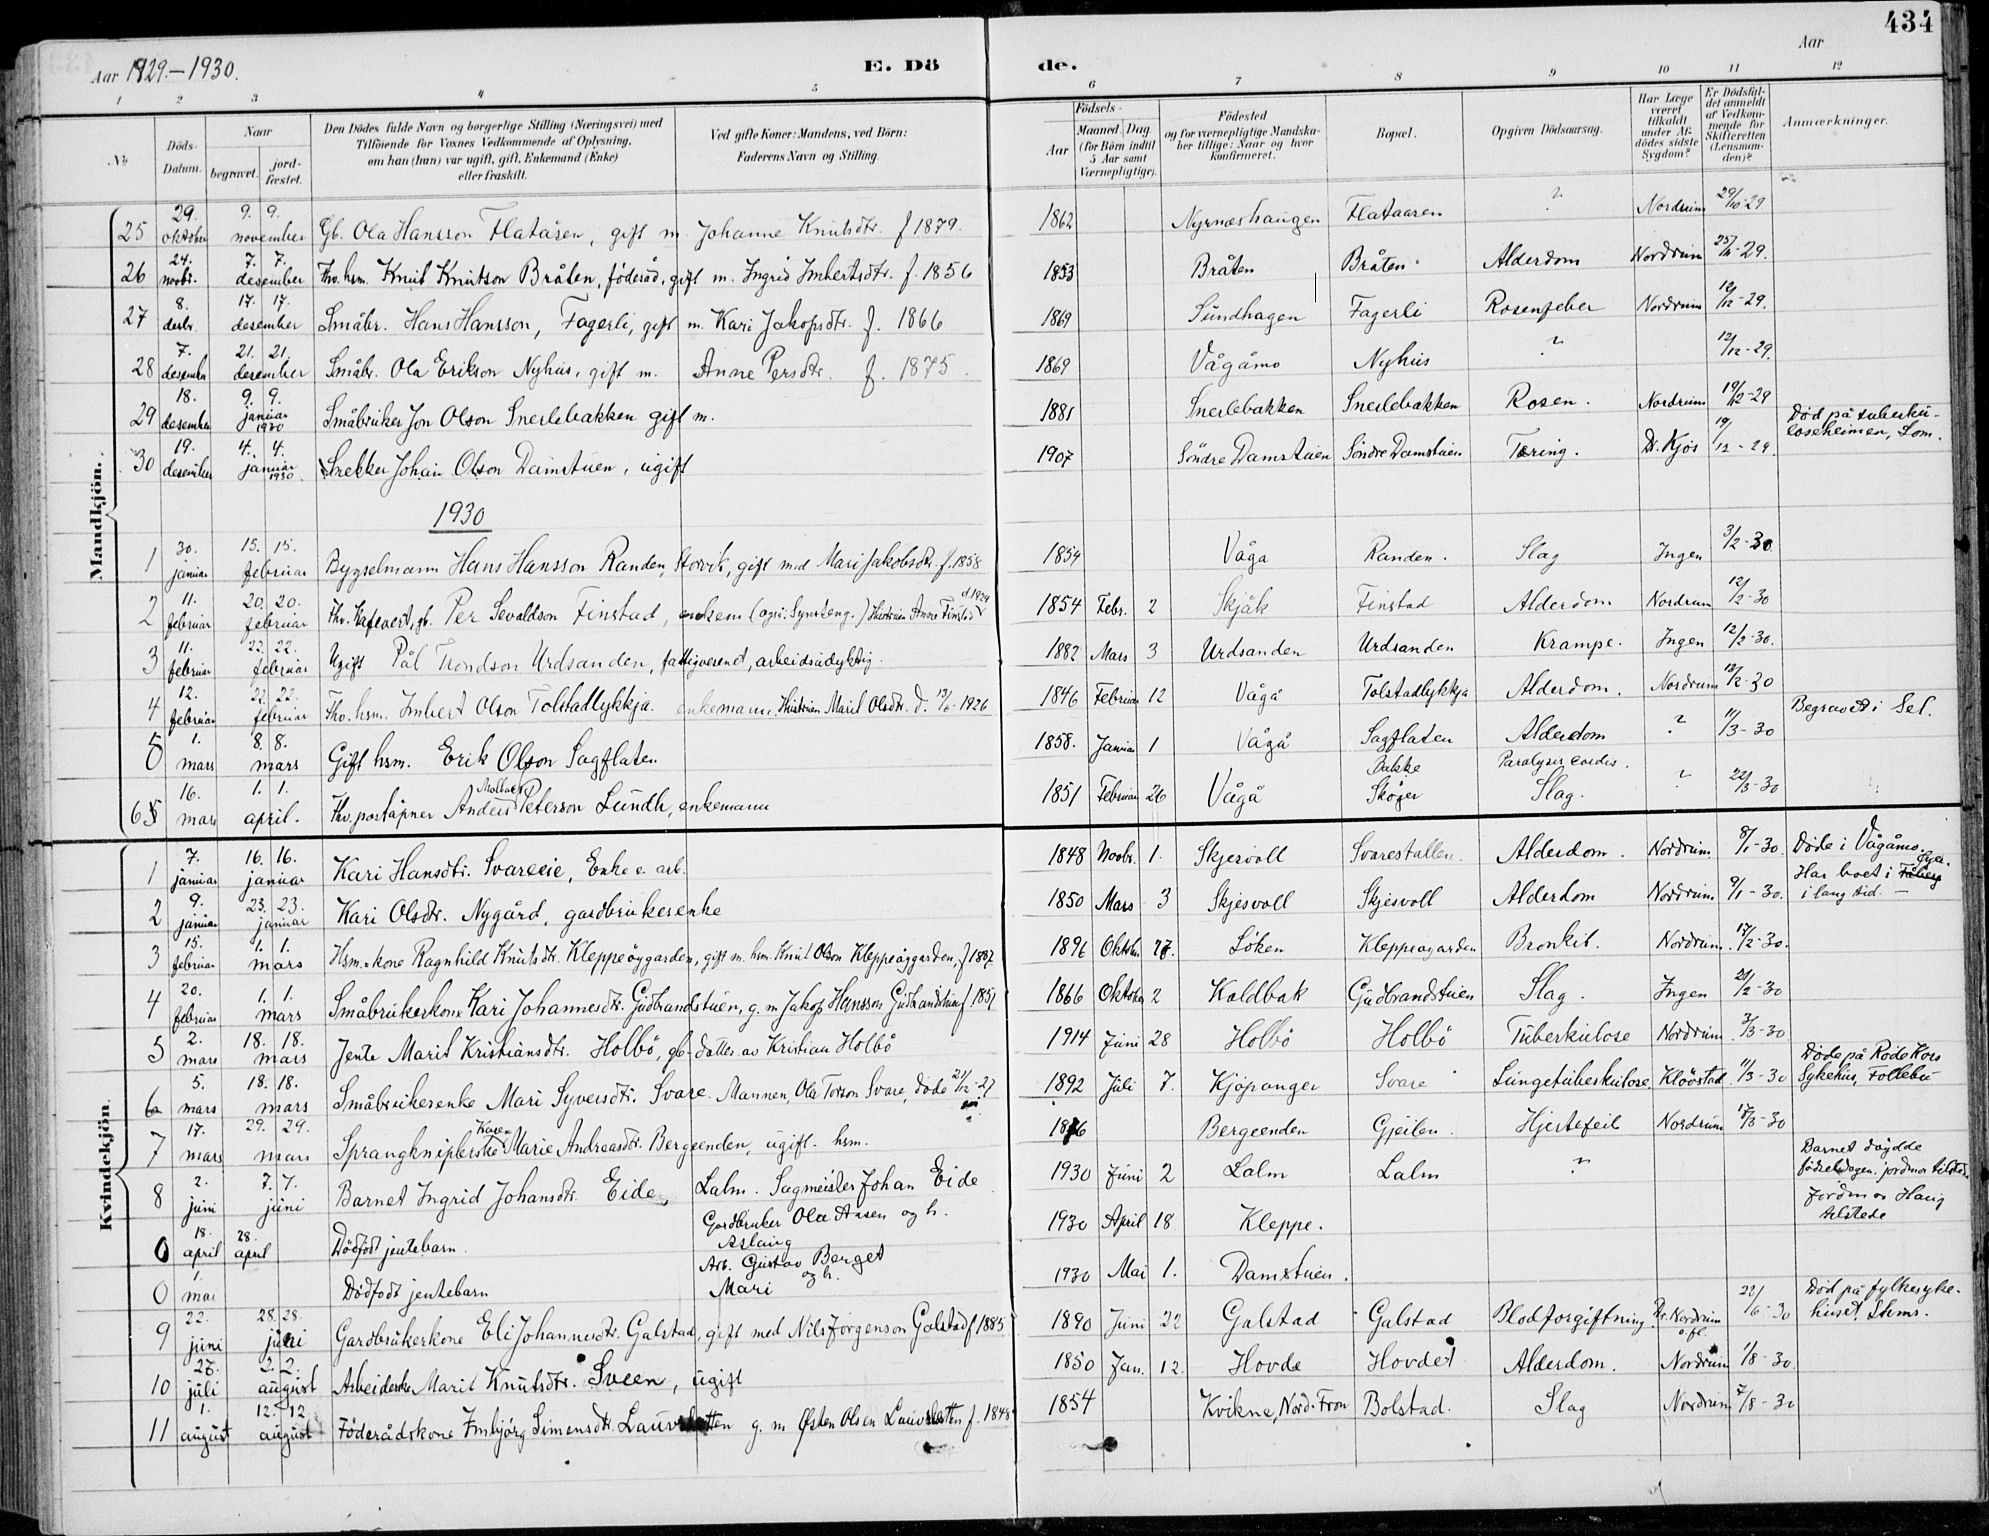 434
Aar 1929.–1930.
E. Dö
de.
Aar
1 2 3 4 5 6 7 8 9 10 11 12
№
Döds-Datum.
Naar
begravet.
jord-fæstet.
Den Dödes fulde Navn og borgerlige Stilling (Næringsvei) med
Tilföiende for Voxnes Vedkommende af Oplysning,
om han (hun) var ugift, gift, Enkemand (Enke)
eller fraskilt.
Ved gifte Koner: Mandens, ved Börn:
Faderens Navn og Stilling.
Födsels-
Aar
Maaned. Dag.
(for Börn indtil
5 Aar samt
Værnepligtige).
Födested
og for værnepligtige Mandska-
ber tillige: Naar og hvor
konfirmeret.
Bopæl.
Opgiven Dödsaarsag.
Har Læge
været
tilkaldt
under Af-
dödes sidste
Sygdom?
Er Dödsfal-
det anmeldt
af Vedkom-
mende for
Skifteretten
(Lensman-
den)?
Anmærkninger.
Mandkjön.
25 29. oktober 9. 9. november Gb. Ola Hansson Flatåsen, gift m. Johanne Knutsdtr. f 1879. 1862 Nyrnæshaugen Flataasen ? Nordrum 29/10-29
26 24. novbr. 7. 7. desember Fhv. hsm. Knut Knutson Bråten, föderåd, gift m. Ingrid Imbertsdtr. f. 1856 1853 Bråten Bråten Alderdom Nordrum 25/11-29.
27 8. desbr. 17. 17. desember Småbr. Hans Hansson, Fagerli, gift m. Kari Jakopsdtr. f. 1866 1869 Sundhagen Fagerli Rosenfeber Nordrum 12/12-29.
28 7. desember 21. 21. desember Småbr. Ola Erikson Nyhus, gift m. Anne Persdtr. f. 1875. 1869 Vågåmo Nyhus ? 12/12-29.
29 18. desember 9. 9. januar 1930 Småbruker Jon Olson Snerlebakken gift m. 1881 Snerlebakken Snerlebakken Rosen. Nordrum 19/12-29 Död på tuberku-
loseheimen, Lom.
30 19. desember 4. 4. januar 1930 Snekker Johan Olson Damstuen, ugift 1907 Söndre Damstuen Söndre Damstuen Tæring. Dr. Kjös 19/12-29
1930
1 30. januar 15. 15. februar Bygselmann Hans Hansson Randen, Storvik, gift med Mari Jakobsdtr. f. 1858 1859 Våga Randen. Slag Ingen 3/2-30
2 11. februar 20. 20. februar Fhv. gb. Per Sevaldson Finstad, Hustruen Anne Finstad d. 1929 1854 Febr. 2 Skjåk Finstad Alderdom Nordrum 12/2-30
3 11. februar 22. 22. februar Ugift Pål Trondson Urdsanden, fattigverend, arbeidsudyktig. 1882 Mars 3 Urdsanden Urdsanden Krampe. Ingen 12/2-30.
4 12. februar 22. 22. februar Fhv. hsm. Imbert Olson Tolstadlykkja. enkemann. Hustruen Marit Olsdtr. d. 13/6-1926 1846 Februar 12 Vågå Tolstadlykkja Alderdom. Nordrum 12/2-30
5 1. mars 8. 8. mars Gift hsm. Erik Olson Sagflaten 1858. Januar 1 Vågå Sagflaten Alderdom ? 11/3-30 Begravet i Sel.
Paralyser cordis.
6 16. mars 1. 1. april. Fhv. poståpner Anders Peterson Lundh, enkemann 1851 Februar 26 Vågå Bakke Skoger Slag. ? 22/3-30
Kvindekjön.
1 7. januar 16. 16. januar Kari Hansdtr. Svareeie, Enke e. arb. 1848 Novbr. 1. Skjervoll Svarestallen. Alderdom. Nordrum 8/1-30. Döde i Vågåmo.
Har boet i Fåberg
i lang tid.
2 9. januar 23. 23. januar Kari Olsdtr. Nygård, gardbrukerenke 1850 Mars 3 Skjesvoll Skjesvoll Alderdom Nordrum 9/1-30.
3 15. februar 1. 1. mars Hsm.kone Ragnhild Knutsdtr. Kleppeöygarden, gift m. hsm. Knut Olson Kleppeöygarden, f 1887 1896 Oktober 27. Löken Kleppeøygarden Bronkit. Nordrum 17/2-30.
4 20. februar 1. 1. mars Småbrukerkone Kari Johannesdtr. Gudbrandstuen, g. m Jakop Hansson Gudbrandstuen f 1851 1866 Oktober 2 Kaldbak Gudbrandstuen Slag. Ingen 21/2-30
5 2. mars 18. 18. mars Jente Marit Kristiansdtr. Holbö, gb-datter av Kristian Holbö 1914 Juni 28 Holbö Holbö Tuberkulose Nordrum 3/3-30
6 5. mars 18. 18. mars Småbrukerenke Mari Syversdtr. Svare. Mannen, Ola Torson Svare, döde 21/2-27 1892 Juli 7. Kjöpanger Svare Lungetuberkulose Klövstad 11/3-30 Döde på Röde Kors
Sykehus, Follebu
7 17. mars 29. 29. mars Sprangkniplerske Karen Marie Andreasdtr. Bergeenden, ugift. hsm. 1876 Bergeenden Gjeilen. Hjertefeil Nordrum 17/3-30
8 2. juni 7. 7. juni Barnet Ingrid Johansdtr. Eide, Lalm. Sagmeister Johan Eide 1930 Juni 2 Lalm Lalm ? Barnet döydde
födselsdagen. jordmor tilstede
0 18. april 28. april Dödfödt jentebarn. Gardbruker Ola Aasen og h.
Aslaug 1930 April 18 Kleppe. Jordmor Haug
tilstede
0 1. mai Dödfodt jentebarn Arb. Gustav Berget
og h.
Mari 1930 Mai 1. Damstuen.
9 22. juni 28. 28. juni Gardbrukerkone Eli Johannesdtr. Galstad, gift med Nils Jörgenson Galstad f 1885 1890 Juni 22 Galstad Galstad Blodforgiftning Dr. Nordrum o. fl. 22/6-30 Död på fylkesyke-
huset,
10 27. juli 2. 2. august Arbeiderske Marit Knutsdtr. Sveen, ugift 1850 Jan. 12. Hovde Hovdet Alderdom. Nordrum 1/8-30.
11 1. august 12. 12. august Föderådskone Imbjörg Simensdtr. Lauvsletten g. m Østen Olsen Lauvsletten f. 1848 1854 Kvikne, Nord-Fron Bolstad. Slag Nordrum 7/8-30